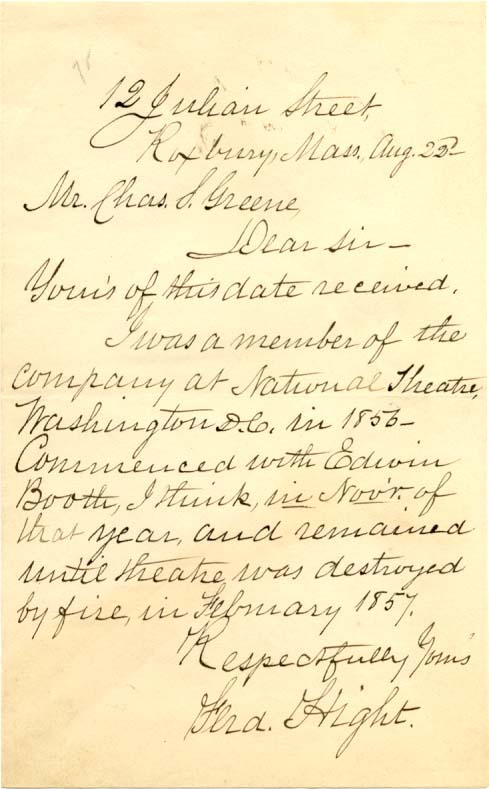 12 Julian Street,
Roxbury, Mass, Aug. 22d
Mr. Chas. S. Greene,
Dear sir—
Yours of this date received.
I was a member of the
company at National Theatre,
Washington D.C. in 1856—
Commenced with Edwin
Booth, I think, in Nov'r. of
that year, and remained
until theatre, was destroyed
by fire, in February 1857.
Respectfully Yours
Ferd. Hight.